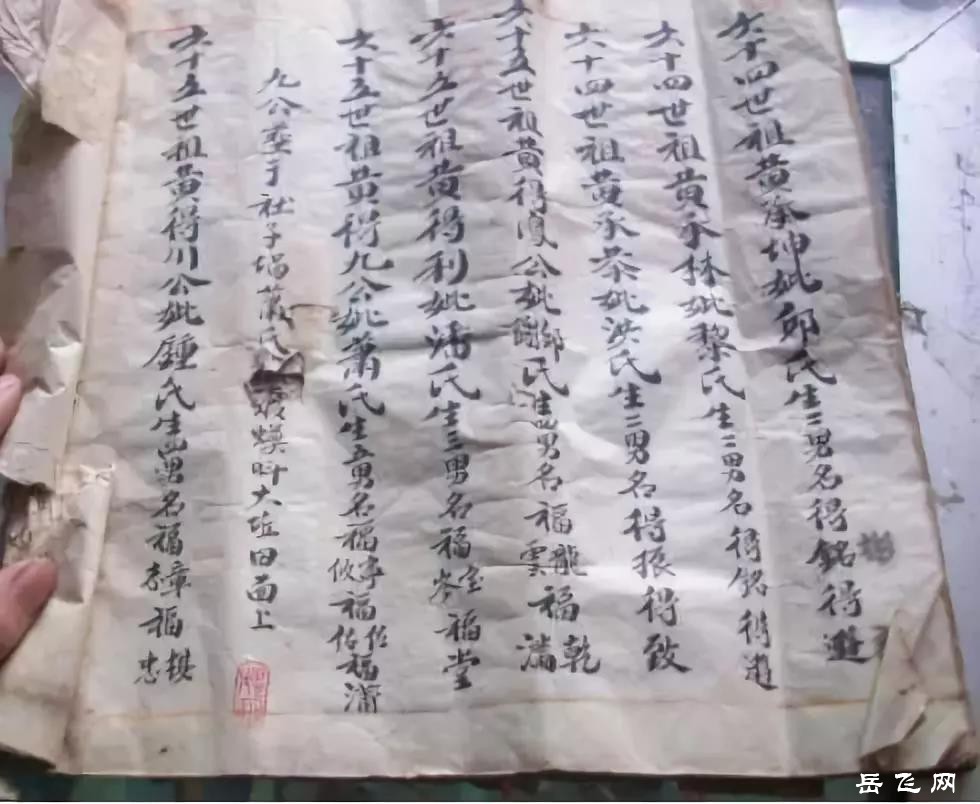 六十四世祖黄承坤妣邱氏生二男名得銘得遊
六十四世祖黄承林妣黎氏生二男名得銘得遊
六十四世祖黄承恭妣洪氏生二男名得振得致
六十五世祖黄得鳳公妣鄒氏生四男名福龍雲福乾滿
六十五世祖黄得利妣潘氏生三男名福宝岑福堂
六十五世祖黄得九公妣萧氏生五男名福寧攸福佐佑福浦
九公塟于社子塲萧氏大坵田面上
六十五世祖黄得川公妣鍾氏生四男名福章志福棋忠
岳飞网